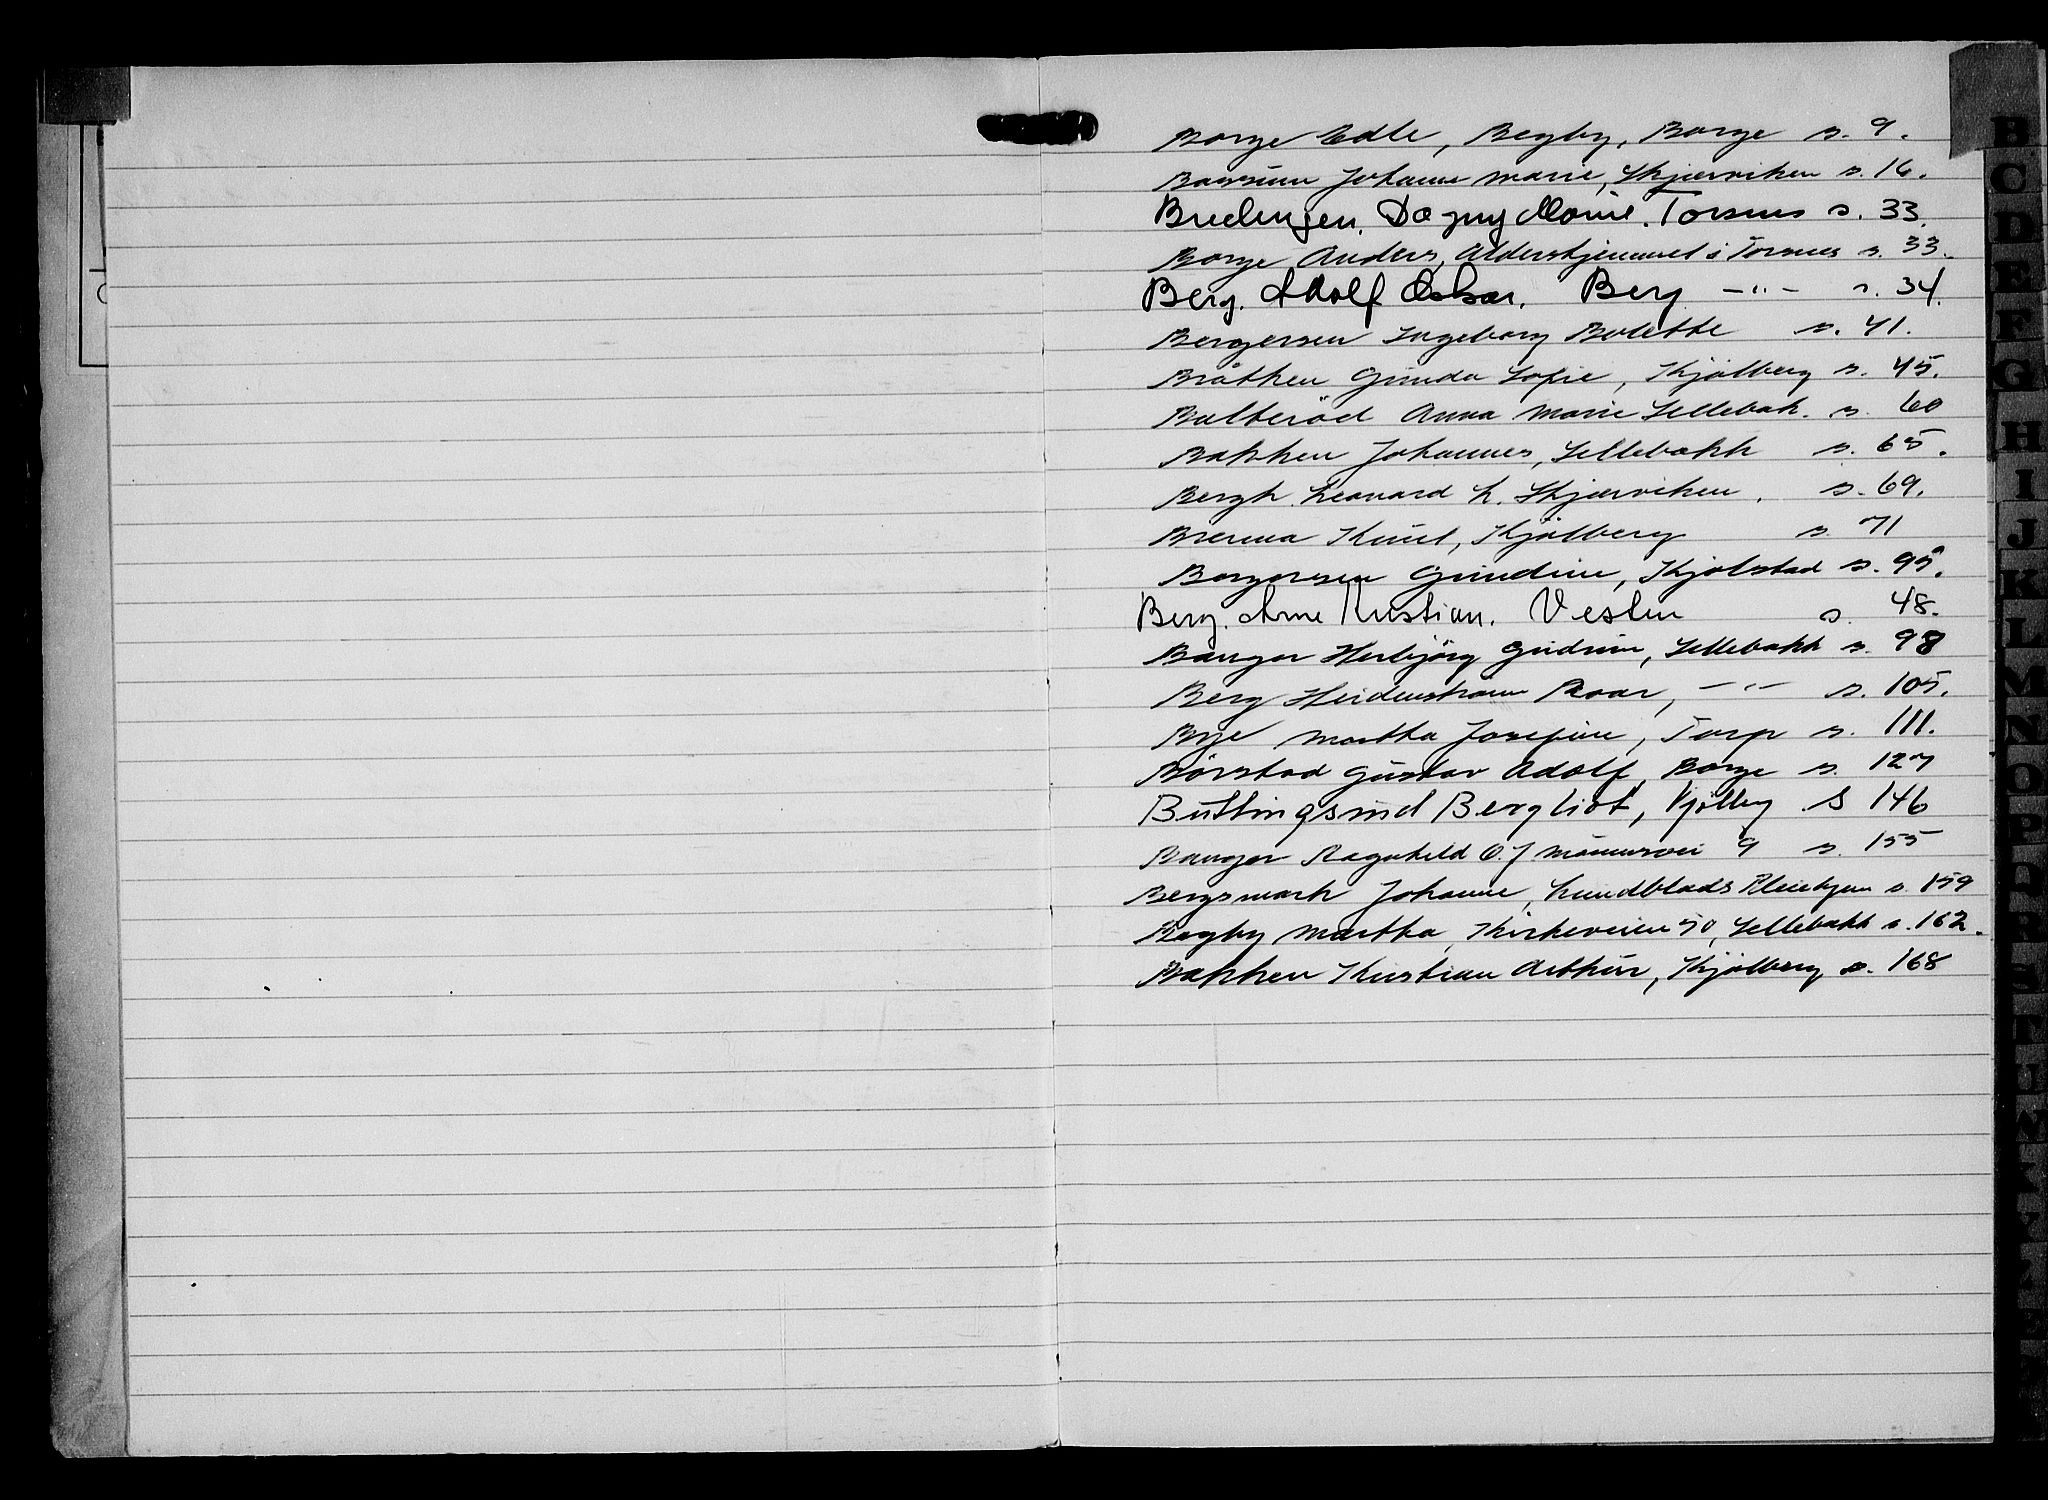 Borge Edle, Begby, Borge s. 9.
Baarsrun Johanne Marie, Skjærviken s. 16.
Brechngen, Dagny Marie. Torsnes s. 33.
Borge Anders, Aldershjemmet i Torsnes s. 33.
Berg. Adolf Oskar. Berg -"- s. 34.
Bergersen Ingeborg Bolette s. 41.
Bråthen Gunda Sofie, Kjølberg s. 45.
Balteröd Anna Marie Sellebak. s. 60
Bakken Johannes, Sellebakk s. 65.
Bergh. Leonard L. Skjærviken. s. 69.
Brenna Knut, Kjölberg s. 71
Borgersen Gundine, Kjølstad s. 95.
Berg. Arne Kristian. Vesten s. 48.
Bangor Herbjörg Gudrun, Sellebakk s. 98
Berg Heidenstrøm Roar, -"- s. 105.
Bye Martha Josefine, Torp s. 111.
Börstad Gustav Adolf, Borge s. 127
Buttingsrud Bergliot, Kjölberg S 146
Bangor Ragnhild O.J Monsensvei 9 s. 155
Bergsmark Johanne, Lundblads Pleiehjem s. 159
Begby Martha, Kirkeveien 50, Sellebakk s. 162.
Bakken Kristian Arthur, Kjølberg s. 168
B
C
D
E
F
G
H
I
J
K
L
M
N
O
P
R
S
T
U